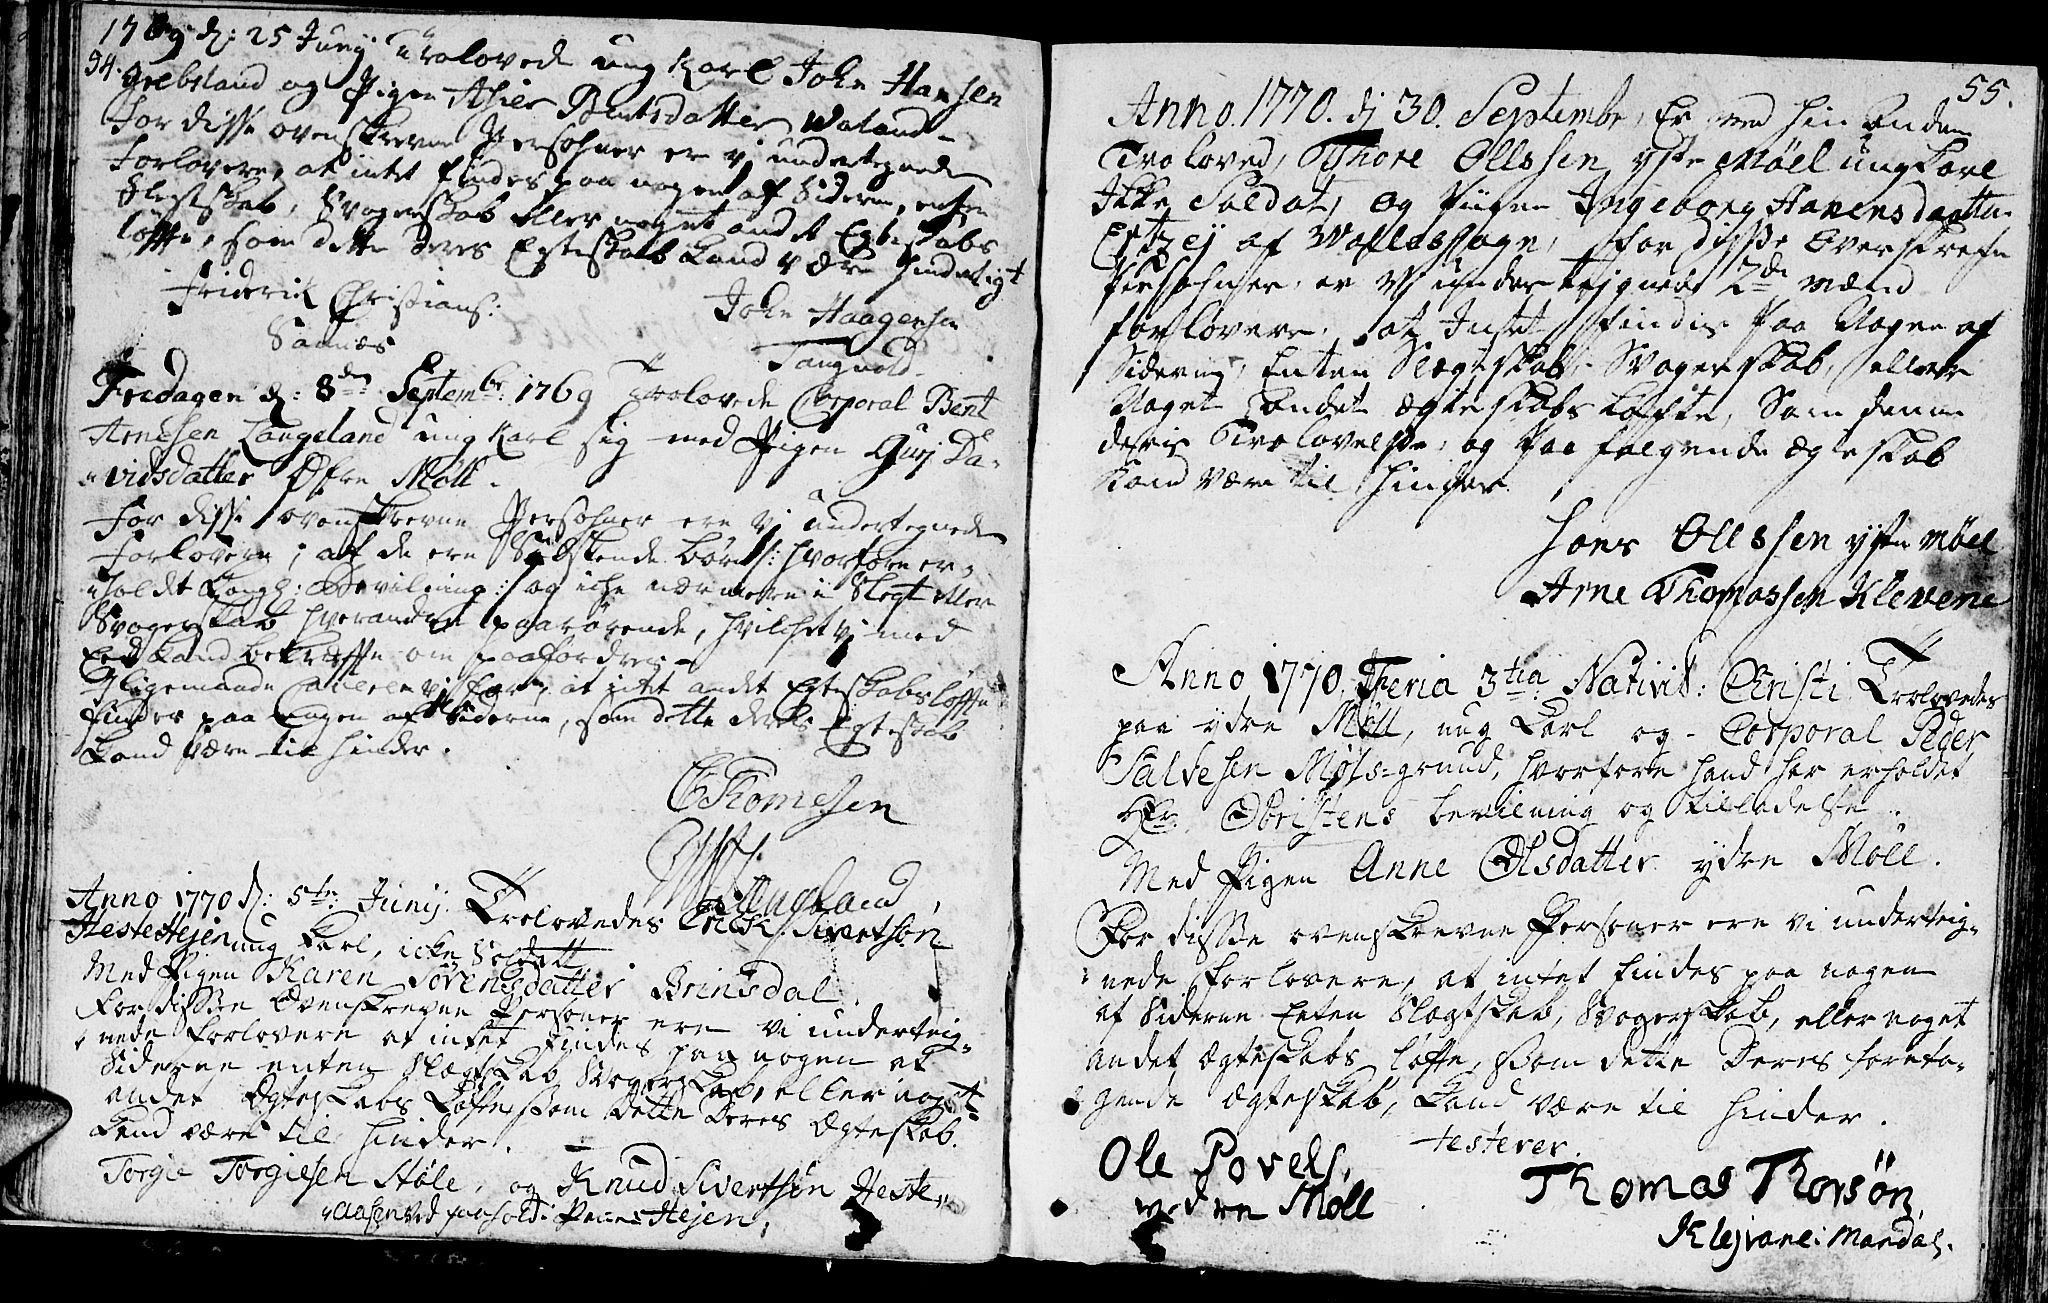 1769 d: 25 Junij Trolovede ung Karl John Hansen
54.
Grebstand og Pigen Asier Bentsdatter Waland
For disse ovenskrevne Persohner er vj undertegnede
Forlovere, at intet findes paa nogen af Siderne, enten
Slegtskab, Svogerskab eller noget andet Egteskabs
løffte, som dette deres Egteskab kand være hinderligt
Friderik Christians: John Haagensen
Sannes Tangvold.
Fredagen d: 8de Septembr: 1769 Trolovede Corporal Bent
Arnesen Langeland ung Karl sig med Pigen Gurj Da-
vidsdatter Øfre Møll.
For disse ovenskrevne Persohner ere vj undertegnede
Forlovere; at de ere Sødskende børn /: hvorfore er-
holdt Kongl: Bevilning :/ og iche nærmere i Slegt eller
Svogerskab hverandre paarørende, hvilchet vj med
Eed kand bekræffte om paafordres
Ligemaade Caverer vj for, at intet andet Egteskabsløffte
findes paa nogen af Siderne, som dette deres Egteskab
kand være til hinder.
Thomesen
Langeland
Anno 1770 d: 5te Junij. Trolovedes Erick Sivertsøn
HesteHejen ung Karl, icke Soldatt
Med Pigen Karen Sörensdatter Brinsdal.
For disse Ovenskrevne Personer ere vi underteig-
nede Forlovere at intet findes paa nogen af
Siderne enten Slægtskab Svogerskab, eller noget
andet Ægteskabs Løfte, som dette Deres Ægteskab.
Kand være til hinder.
Torgie Torgiesen Støle, og Knud Sivertsøn Heste
Hejen,
55.
Anno. 1770. dj 30. Septembr, Er med hin anden
Troloved, Thore Ollssen yste Møel ungkarl
Ikke Soldat, og Piigen Ingeborg Hanensdaatter
af sogn, for disse Overskrefne
Persohner, er Vj undertejgnede 2de mænd
forlovere, at Intet findes paa Nogen af
Siderne, Enten Slegtskab, Svogerskab, eller
Noget andet ægteskabs Løfte, Som denne
deris Trolovelse, og paa følgende ægteskab
Kand være til hinder
Hans Ollssen yste møel
Arne Thomassen Klevene
Anno 1770, Feria 3tia Nativit: Christi Trolovedes
paa ydre Møll, ung Karl og Corporal Peder
Salvesen Møls-grund, hvorfore hand har erholdet
Hr Obristens bevilning og tilladelse.
Med Pigen Anne Olsdatter ydre Møll.
For disse ovenskrevne Personer ere vi underteig-
nede forlovere, at intet findes paa nogen
af Siderne Enten Slægtskab, Svogerskab, eller noget
andet ægteskabs løfte, som dette Deres foreta-
gende ægteskab, Kand være til hinder.
testerer.
Ole Povels, Thomas Thorsøn,
ydre Møll Klejvane: Mandal.